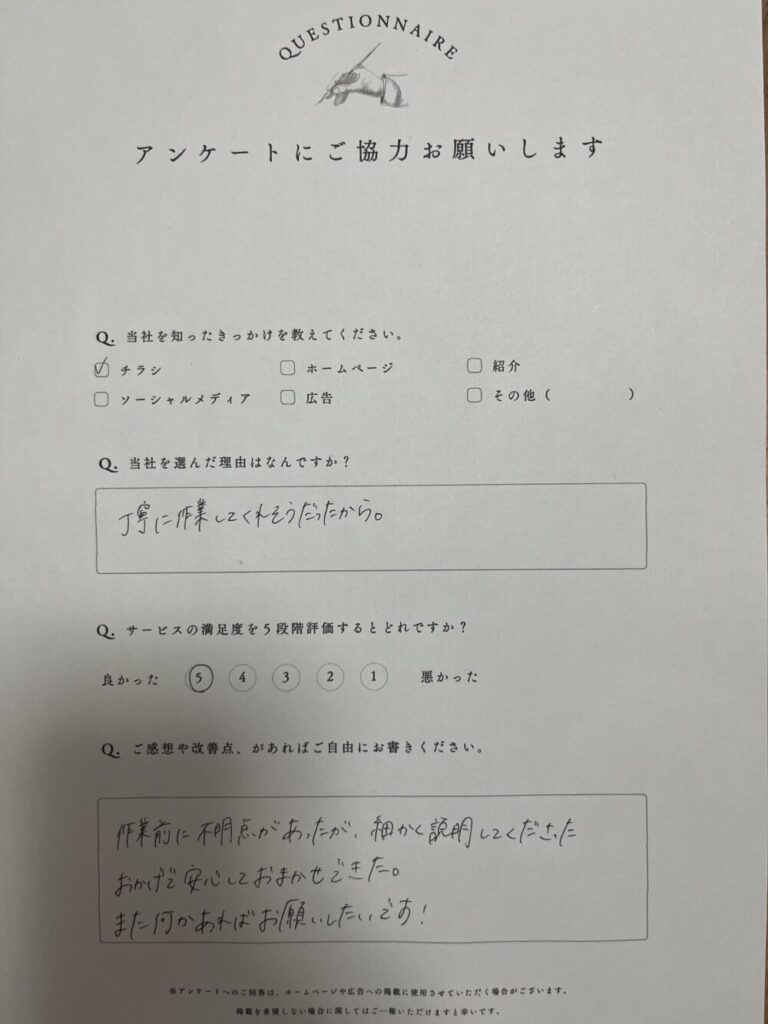 QUESTIONNAIRE
アンケートにご協力お願いします
Q. 当社を知ったきっかけを教えてください。
チラシ ホームページ 紹介
ソーシャルメディア 広告 その他（ ）
Q. 当社を選んだ理由はなんですか？
丁寧に作業してくれそうだったから。
Q. サービスの満足度を５段階評価するとどれですか？
良かった 5 4 3 2 1 悪かった
Q. ご感想や改善点、があればご自由にお書きください。
作業前に不明点があったが、細かく説明してくださった
おかげで安心しておまかせできた。
また何かあればお願いしたいです！
※アンケートへのご回答は、ホームページや広告への掲載に使用させていただく場合がございます。
掲載を希望しない場合に関してはご一報いただけますと幸いです。